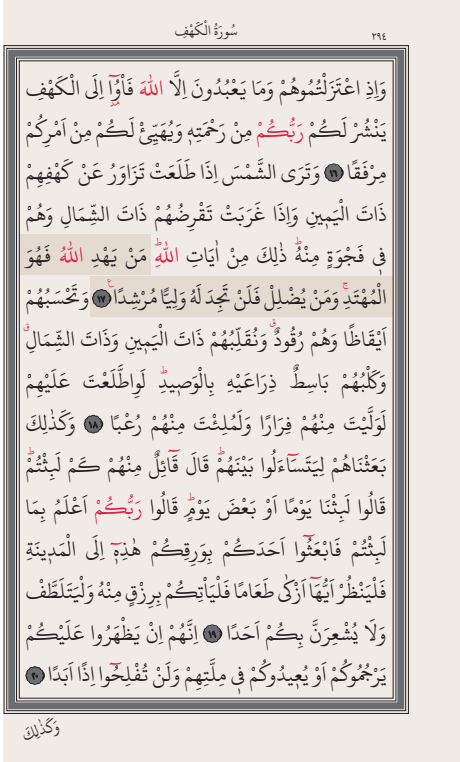 سُورَةُ الْكَهْفِ
٢٩٤
وَاِذِ اعْتَزَلْتُمُوهُمْ وَمَا يَعْبُدُونَ اِلَّا اللّٰهَ فَأْوُٓا اِلَى الْكَهْفِ
يَنْشُرْ لَكُمْ رَبُّكُمْ مِنْ رَحْمَتِه۪ وَيُهَيِّئْ لَكُمْ مِنْ اَمْرِكُمْ
مِرْفَقًا ١٦ وَتَرَى الشَّمْسَ اِذَا طَلَعَتْ تَزَاوَرُ عَنْ كَهْفِهِمْ
ذَاتَ الْيَم۪ينِ وَاِذَا غَرَبَتْ تَقْرِضُهُمْ ذَاتَ الشِّمَالِ وَهُمْ
ف۪ي فَجْوَةٍ مِنْهُۜ ذٰلِكَ مِنْ اٰيَاتِ اللّٰهِۜ مَنْ يَهْدِ اللّٰهُ فَهُوَ
الْمُهْتَدِۚ وَمَنْ يُضْلِلْ فَلَنْ تَجِدَ لَهُ وَلِيًّا مُرْشِدًاۚ ١٧ وَتَحْسَبُهُمْ
اَيْقَاظًا وَهُمْ رُقُودٌۗ وَنُقَلِّبُهُمْ ذَاتَ الْيَم۪ينِ وَذَاتَ الشِّمَالِۗ
وَكَلْبُهُمْ بَاسِطٌ ذِرَاعَيْهِ بِالْوَص۪يدِۜ لَوِاطَّلَعْتَ عَلَيْهِمْ
لَوَلَّيْتَ مِنْهُمْ فِرَارًا وَلَمُلِئْتَ مِنْهُمْ رُعْبًا ١٨ وَكَذٰلِكَ
بَعَثْنَاهُمْ لِيَتَسَٓاءَلُوا بَيْنَهُمْۜ قَالَ قَٓائِلٌ مِنْهُمْ كَمْ لَبِثْتُمْۜ
قَالُوا لَبِثْنَا يَوْمًا اَوْ بَعْضَ يَوْمٍۜ قَالُوا رَبُّكُمْ اَعْلَمُ بِمَا
لَبِثْتُمْ فَابْعَثُٓوا اَحَدَكُمْ بِوَرِقِكُمْ هٰذِه۪ٓ اِلَى الْمَد۪ينَةِ
فَلْيَنْظُرْ اَيُّهَٓا اَزْكٰى طَعَامًا فَلْيَأْتِكُمْ بِرِزْقٍ مِنْهُ وَلْيَتَلَطَّفْ
وَلَا يُشْعِرَنَّ بِكُمْ اَحَدًا ١٩ اِنَّهُمْ اِنْ يَظْهَرُوا عَلَيْكُمْ
يَرْجُمُوكُمْ اَوْ يُع۪يدُوكُمْ ف۪ي مِلَّتِهِمْ وَلَنْ تُفْلِحُٓوا اِذًا اَبَدًا ٢٠
وَكَذٰلِكَ